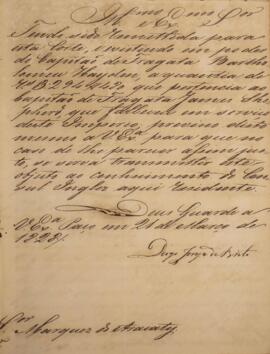 Illmo. Exmo. Sor
Tendo sido remettida para
esta Corte, e existindo em poder
do Capitão de Fragata Barthe
lomeu Hayden, a quantia de
que pertencia ao
Capitão de Fragata James She
pherd, que falleceu no serviço
deste Imperio
a V.Exa. para que no
caso de lhe parecer assim jus
to, se sirva transmittir este
objecto ao conhecimento do Con
sul Inglez aqui residente.
Deos Guarde a
V.Exa. Paço em 21 de Março de
1828.
Diogo Jorge de Brito
Sor. Marquez de Aracaty.